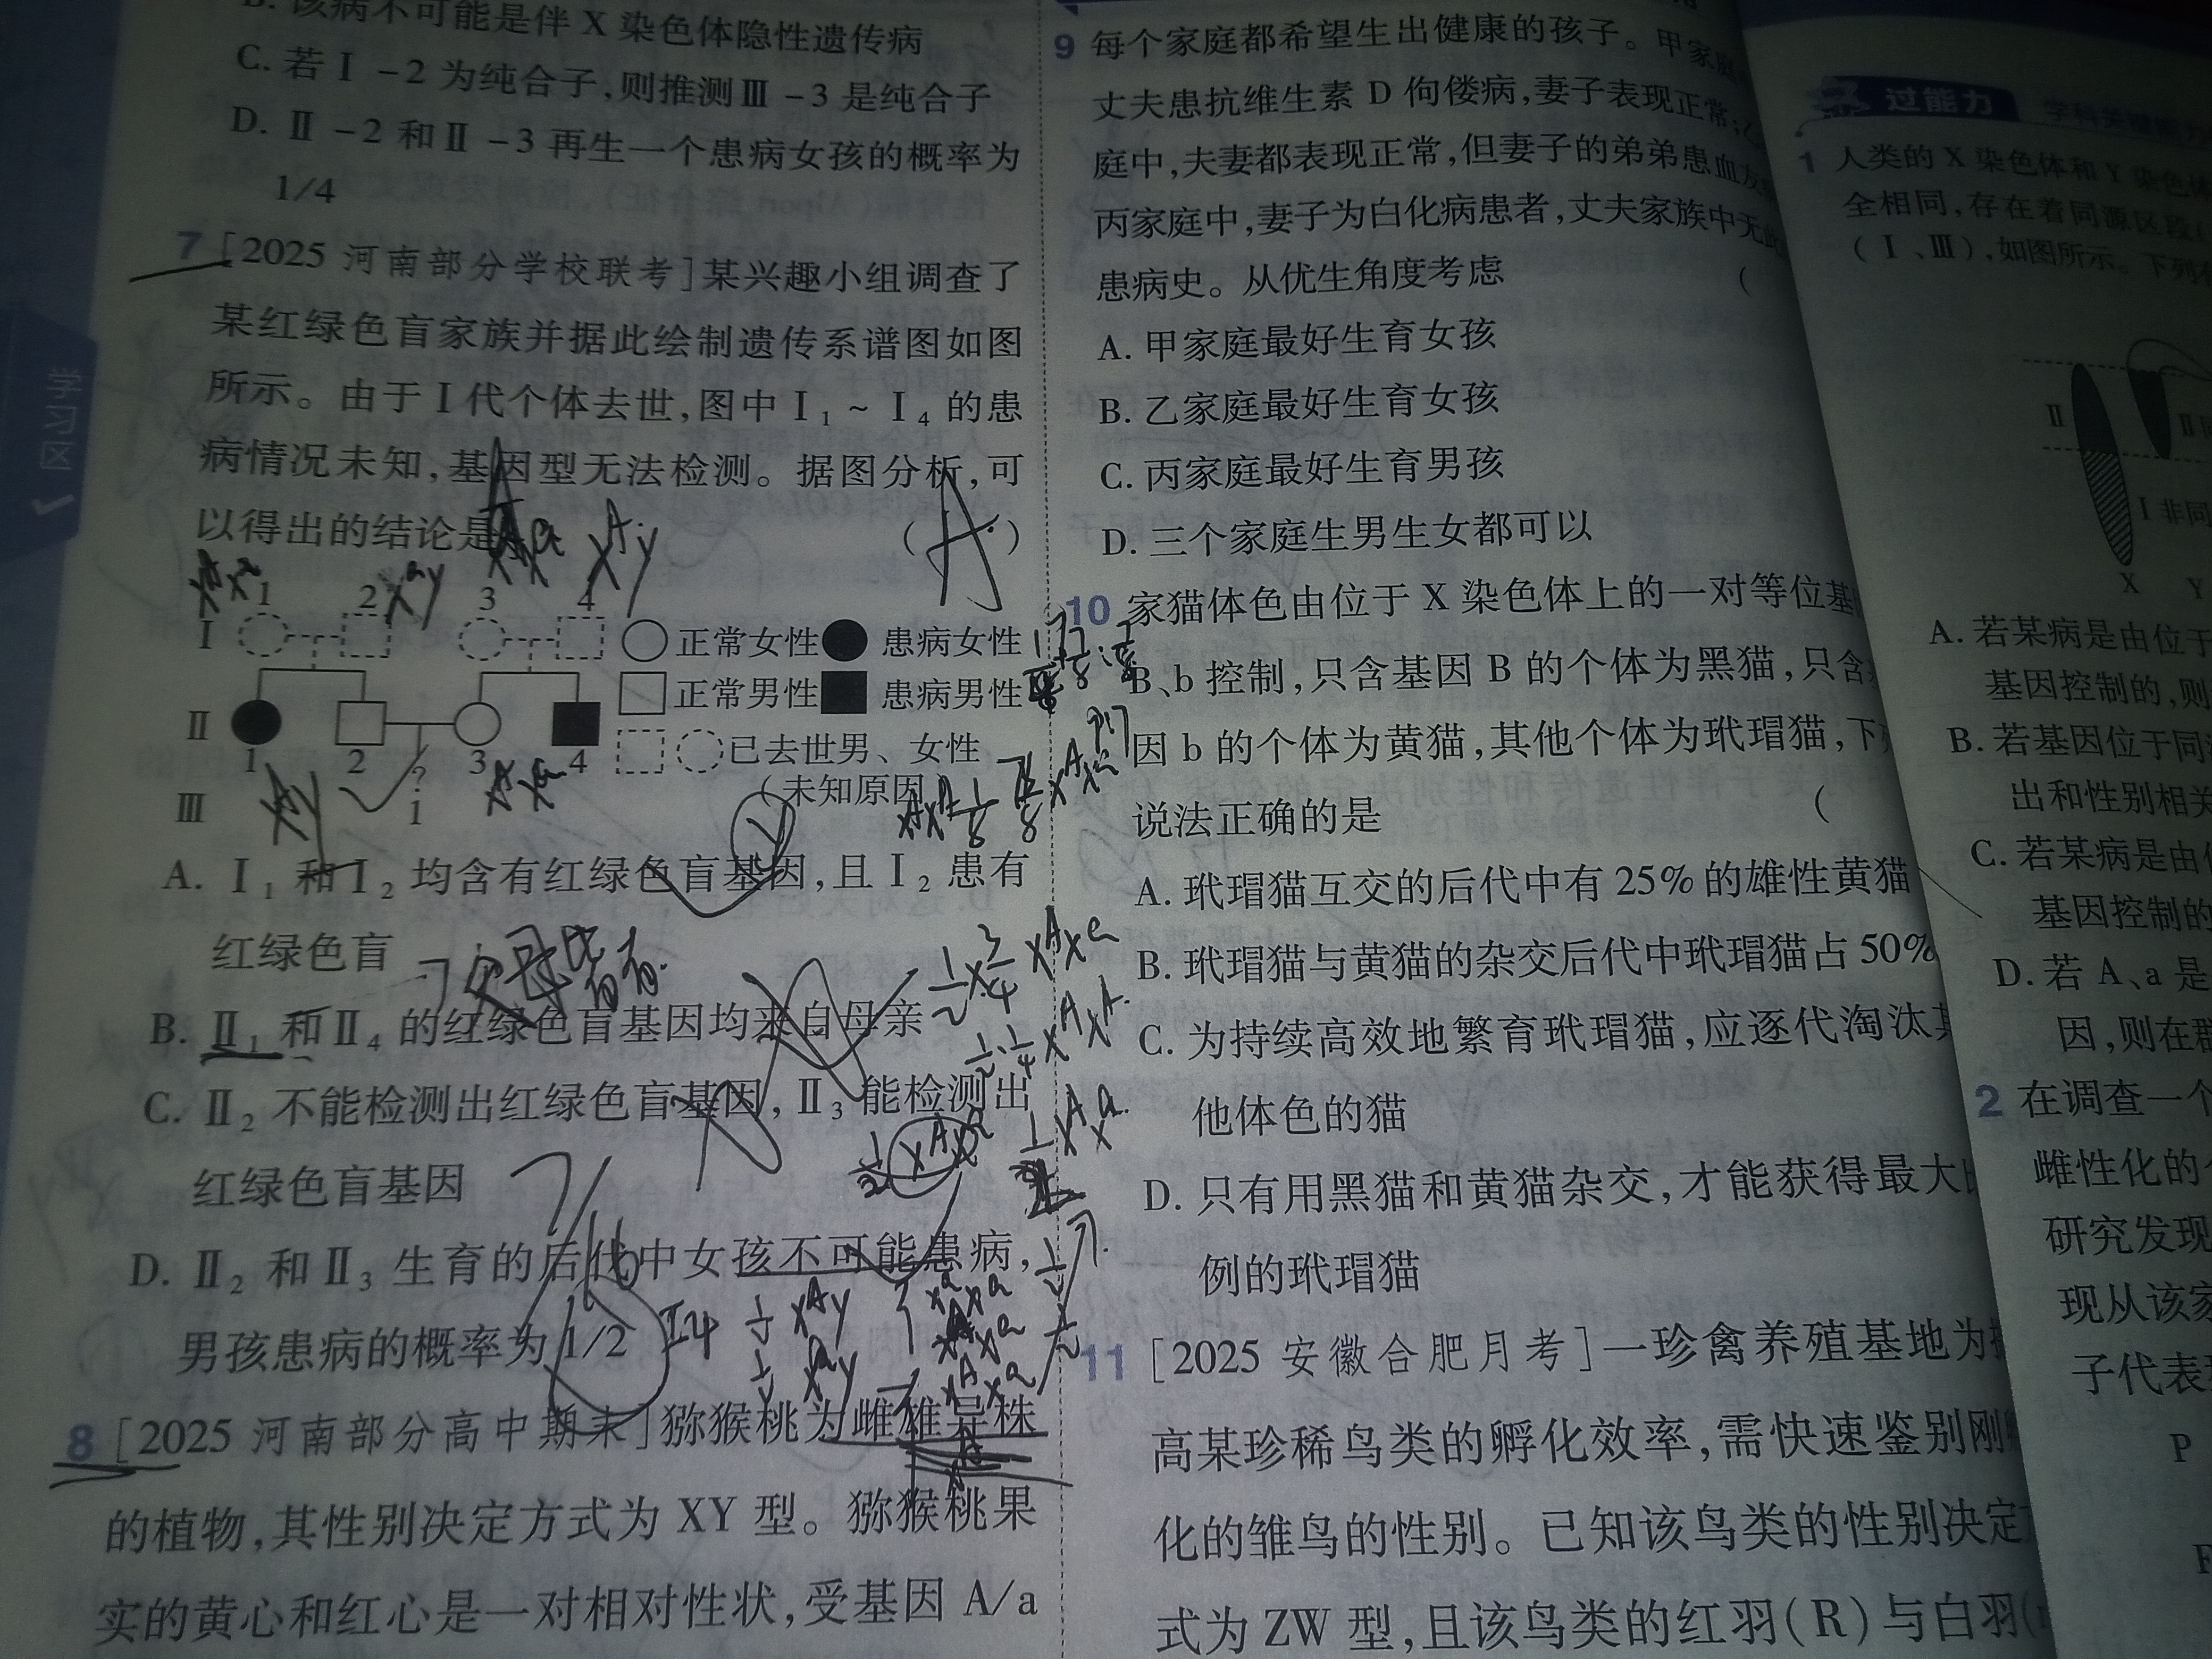 B. 该病不可能是伴 X 染色体隐性遗传病
C. 若Ⅰ-2 为纯合子,则推测Ⅲ-3 是纯合子
D. Ⅱ-2 和Ⅱ-3 再生一个患病女孩的概率为
1/4
7 [2025 河南部分学校联考]某兴趣小组调查了
某红绿色盲家族并据此绘制遗传系谱图如图
所示。由于Ⅰ代个体去世,图中Ⅰ₁~Ⅰ₄ 的患
病情况未知,基因型无法检测。据图分析,可
以得出的结论是 ( A )
1 2 3 4
Ⅰ 正常女性 患病女性
正常男性 患病男性
Ⅱ 已去世男、女性
1 2 ? 3 4
(未知原因)
Ⅲ 1
A. Ⅰ₁ 和Ⅰ₂ 均含有红绿色盲基因,且Ⅰ₂ 患有
红绿色盲
B. Ⅱ₁ 和Ⅱ₄ 的红绿色盲基因均来自母亲
C. Ⅱ₂ 不能检测出红绿色盲基因,Ⅱ₃ 能检测出
红绿色盲基因
D. Ⅱ₂ 和Ⅱ₃ 生育的后代中女孩不可能患病,
男孩患病的概率为 1/2
8 [2025 河南部分高中期末]猕猴桃为雌雄异株
的植物,其性别决定方式为 XY 型。猕猴桃果
实的黄心和红心是一对相对性状,受基因 A/a
学习区
9 每个家庭都希望生出健康的孩子。甲家庭
丈夫患抗维生素 D 佝偻病,妻子表现正常;
庭中,夫妻都表现正常,但妻子的弟弟患血友
丙家庭中,妻子为白化病患者,丈夫家族中无
患病史。从优生角度考虑 (
A. 甲家庭最好生育女孩
B. 乙家庭最好生育女孩
C. 丙家庭最好生育男孩
D. 三个家庭生男生女都可以
10 家猫体色由位于 X 染色体上的一对等位基
B、b 控制,只含基因 B 的个体为黑猫,只含
因 b 的个体为黄猫,其他个体为玳瑁猫,下
说法正确的是 (
A. 玳瑁猫互交的后代中有 25% 的雄性黄猫
B. 玳瑁猫与黄猫的杂交后代中玳瑁猫占 50%
C. 为持续高效地繁育玳瑁猫,应逐代淘汰其
他体色的猫
D. 只有用黑猫和黄猫杂交,才能获得最大
例的玳瑁猫
11 [2025 安徽合肥月考]一珍禽养殖基地为
高某珍稀鸟类的孵化效率,需快速鉴别刚
化的雏鸟的性别。已知该鸟类的性别决定
式为 ZW 型,且该鸟类的红羽(R)与白羽(
过能力
1 人类的 X 染色体和 Y 染色
全相同,存在着同源区段
(Ⅰ、Ⅲ),如图所示。下列
Ⅱ Ⅱ
Ⅰ 非同
X Y
A. 若某病是由位于
基因控制的,则
B. 若基因位于同
出和性别相关
C. 若某病是由
基因控制的
D. 若 A、a 是
因,则在
2 在调查一个
雌性化的
研究发现
现从该家
子代表
P